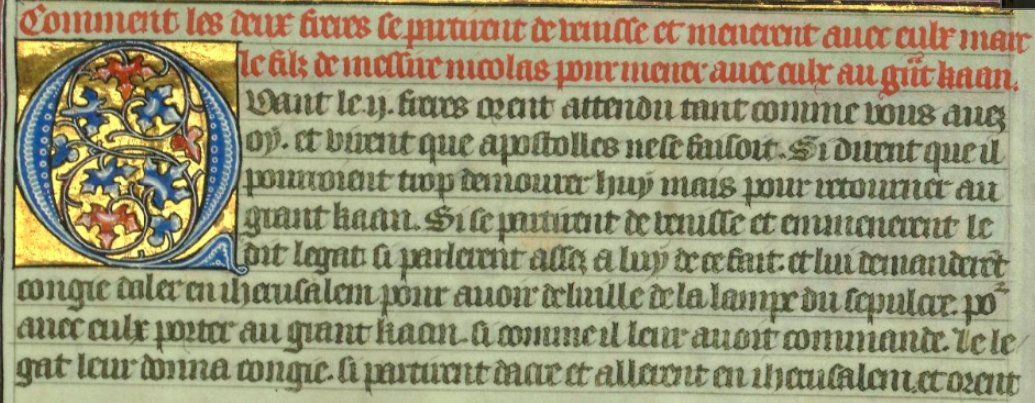 Comment les deux freres se partirent de venisse et menerent auec eulx marc
le filz de messire nicolas pour mener auec eulx au g̃nt kaan.
Quant le .ij. freres orent attendu tant comme vous auez
oy. et virent que apostolles ne se faisoit. Si dirent que il
pourroient trop demourer huy mais pour retourner au
grant kaan. Si se partirent de venisse et emmenerent le
dit legat si parlerent assez a luy de ce fait. et lui demanderẽt
congie daler en iherusalem pour auoir de luille de la lampe du sepulcre. po²
auec eulx porter au grant kaan. si comme il leur auoit commande. Le le
gat leur donna congie. si partirent dacre et allerent en iherusalem. et orent